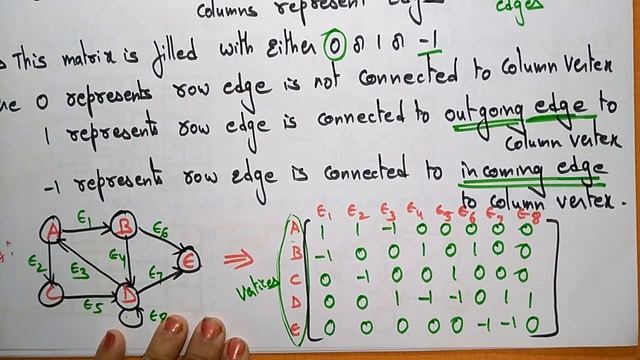 columns represent
edges
This matrix is filled with either 0 or 1 or -1
0 represents row edge is not connected to column vertex
1 represents row edge is connected to outgoing edge to
column vertex
-1 represents row edge is connected to incoming edge
to column vertex.
E1 E2 E3 E4 E5 E6 E7 E8
A 1 1 -1 0 0 0 0 0
B -1 0 0 1 0 1 0 0
C 0 -1 0 0 1 0 0 0
D 0 0 1 -1 -1 0 1 1
E 0 0 0 0 0 -1 -1 0
vertices
A E1 B E6
E2 E3 E4 E
C E5 D E7
E8